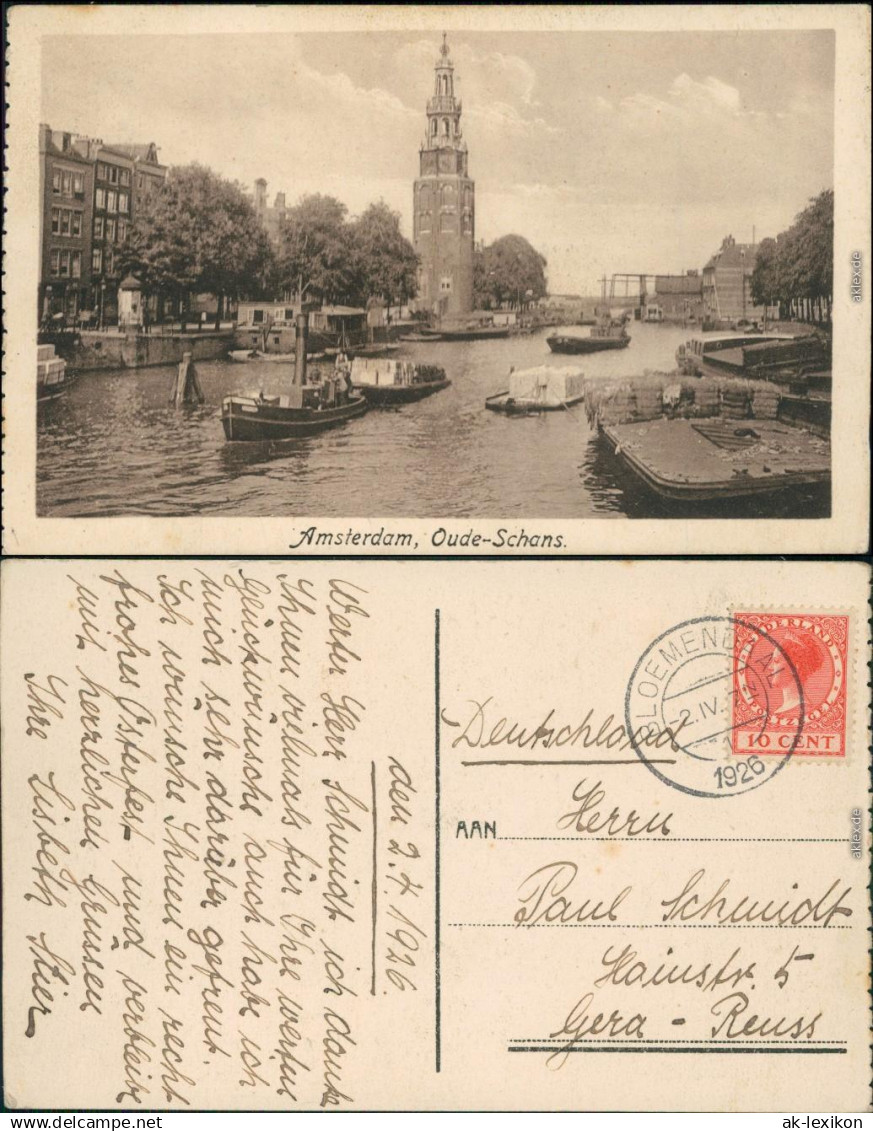 Amsterdam, Oude-Schans.
den 2.4.1926.
Werter Herr Schmidt ich danke
Ihnen vielmals für Ihre werten
Glückwünsche auch habe ich
mich sehr darüber gefreut.
Ich wünsche Ihnen ein recht
frohes Osterfest und verbleibe
mit herzlichen Grüssen
Ihre Lisbeth Stier
NEDERLAND
POSTZEGEL
10 CENT
BLOEMENDAAL
2.IV.
1926
Deutschland
AAN Herrn
Paul Schmidt
Hainstr. 5
Gera - Reuss
ak-lexikon.de
ak-lexikon.de
ak-lexikon